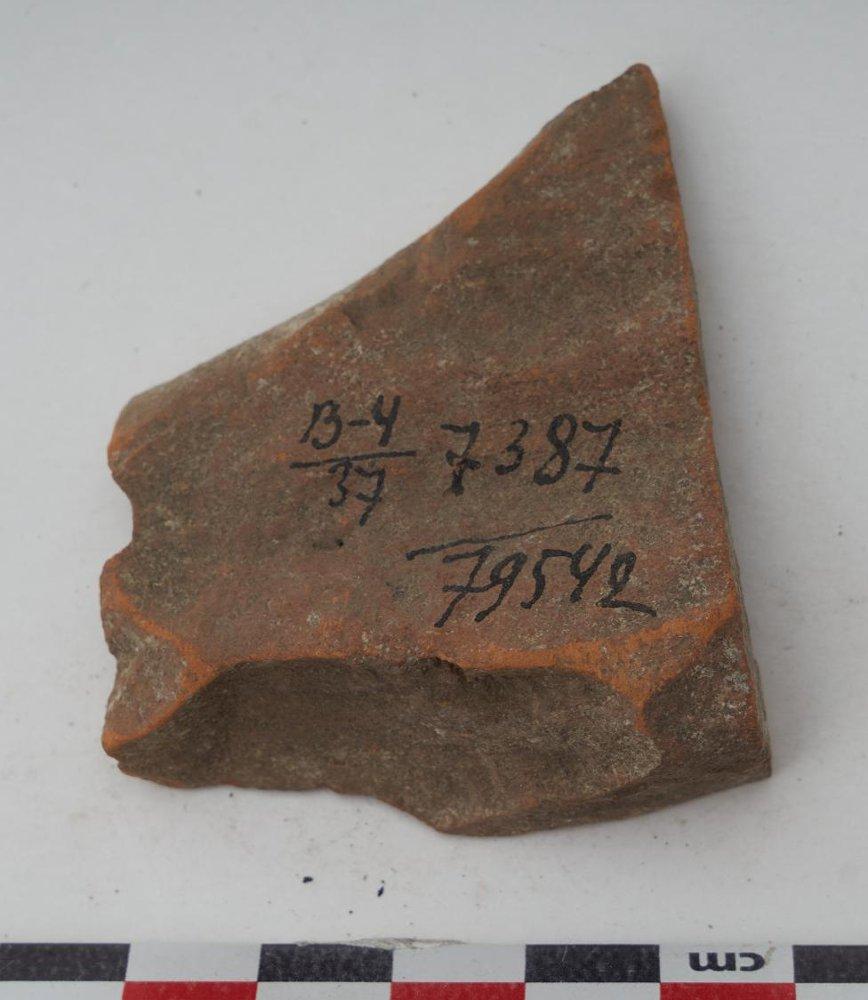 B-4 7387
37
79542
cm